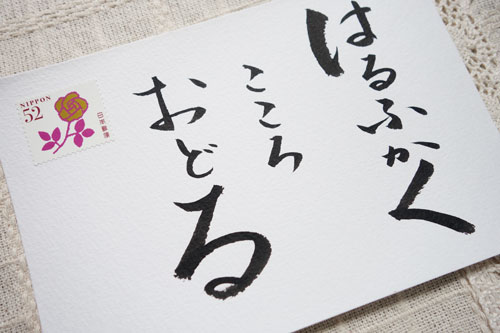 はるふかく
こころ
おどる
NIPPON
52
日本郵便